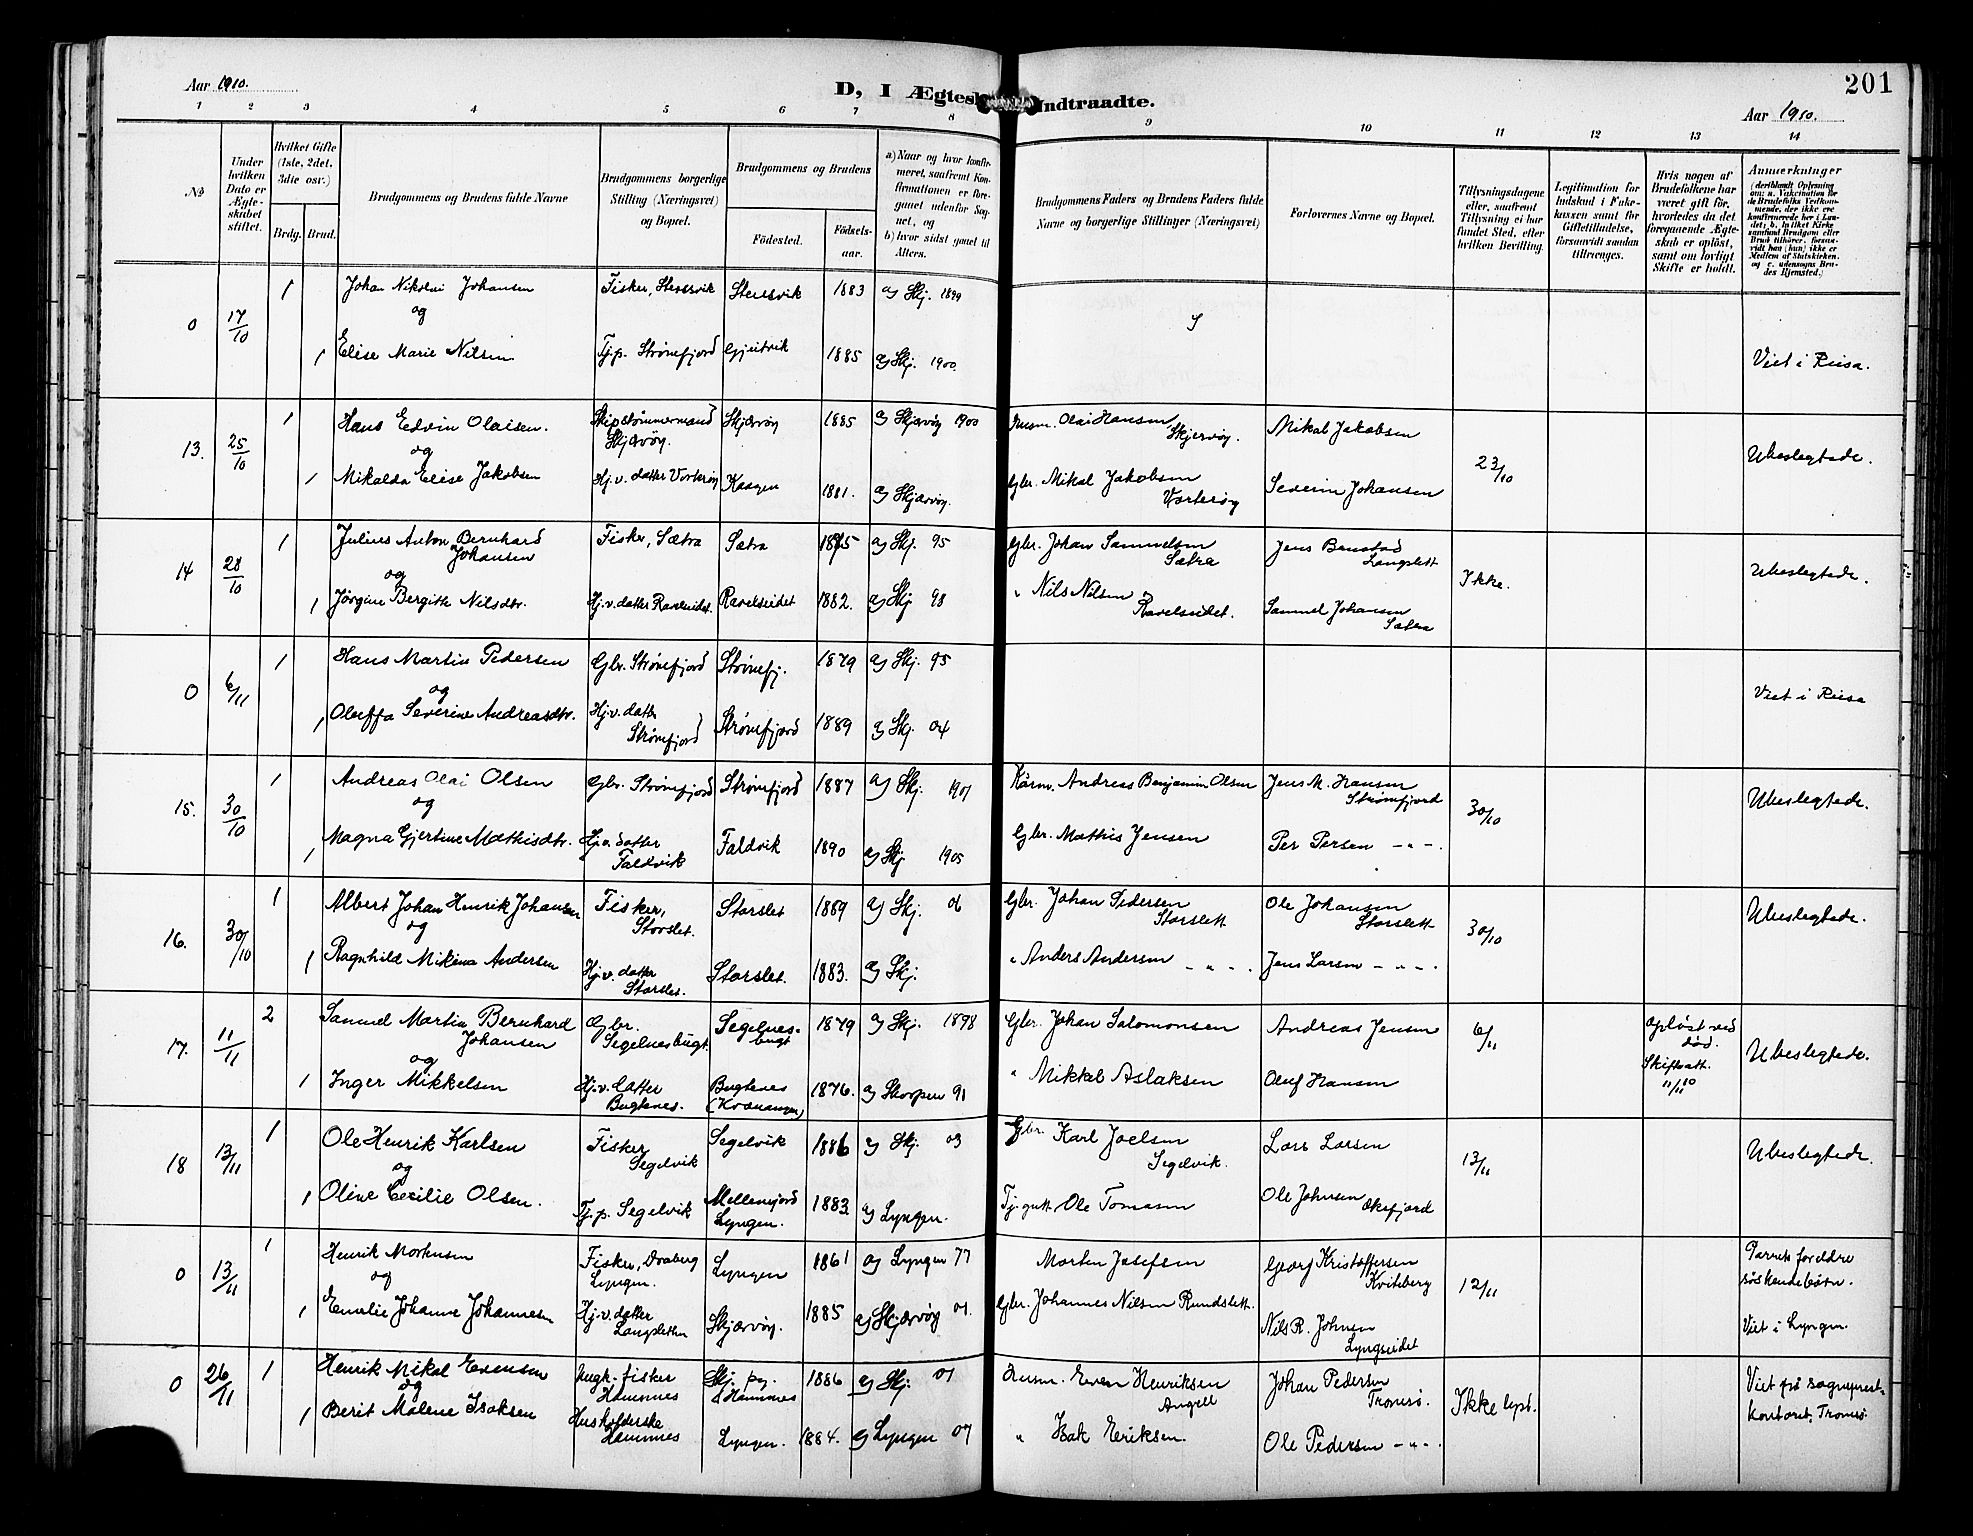 201
Aar 1910.
D, I Ægtes Indtraadte.
Aar 1910.
1 2 3 4 5 6 7 8 9 10 11 12 13 14
No
Under hvilken Dato er Ægteskabet stiftet.
Hvilket Gifte (1ste, 2det, 3die osv.)
Brdg. Brud.
Brudgommens og Brudens fulde Navne
Brudgommens borgerlige Stilling (Næringsvei) og Bopæl.
Brudgommens og Brudens
Födested.
Födselsaar.
a) Naar og hvor konfirmeret, saafremt Konfirmationen er foregaaet udenfor Sognet, og
b) hvor sidst gaaet til Alters.
Brudgommens Faders og Brudens Faders fulde Navne og borgerlige Stillinger (Næringsvei)
Forlovernes Navne og Bopæl.
Tillysningsdagene eller, saafremt Tillysning ei har fundet Sted, efter hvilken Bevilling.
Legitimation for Indskud i Enkekassen samt for Giftetilladelse, forsaavidt saadan tiltrænges.
Hvis nogen af Brudefolkene har været gift för, hvorledes da det foregaaende Ægteskab er oplöst, samt om lovligt Skifte er holdt.
Anmerkninger
(deriblandt Oplysning om: a. Vakcination for de Brudefolks Vedkommende, der ikke ere konfirmerede her i Landet; b. hvilket Kirkesamfund Brudgom eller Brud tilhører, forsaavidt han (hun) ikke er Medlem af Statskirken, og c. udensogns Brudes Hjemsted.)
0 17/10 1 Johan Nikolai Johansen Fisker, Stensvik Stensvik 1883 a) Skj. 1899
og
1 Elise Marie Nilsen Tj.p. Strømfjord Gjeitvik 1885 a) Skj. 1900. Viet i Reisa.
13. 25/10 1 Hans Edvin Olaisen. Skipstømmermand Skjærvøy. Skjærvøy 1885 a) Skjærvøy 1900 Husm. Olai Hansen Skjervøy. Mikal Jakobsen 23/10 Ubeslegtede.
og
1 Mikalda Elise Jakobsen Hj.v. datter Vorterøy Kaagen 1881. a) Skjærvøy. Gbr. Mikal Jakobsen Vorterøy Severin Johansen
14 28/10 1 Julius Anton Bernhard Johansen Fisker, Sætra Sætra a) Skj. 95 Gbr. Johan Samuelsen Sætra Jens Benstad Langslett Ikke. Ubeslegtede.
og
1 Jörgine Bergitte Nilsdtr. Hj.v. datter Ravelseidet. Ravelseidet 1882. a) Skj 98 " Nils Nilsen Ravelseidet. Samuel Johansen Sætra
0 6/11 1 Hans Martin Pedersen Gbr. Strømfjord Strømfj. 1879 a) Skj. 95 Viet i Reisa
og
1 Oluffa Severine Andreasdtr. Hj.v. datter Strømfjord Strømfjord 1889 a) Skj. 04
15. 30/10 1 Andreas Olai Olsen Gbr. Strømfjord Strømfjord 1887 a) Skj. 1901 Andreas Benjamin Olsen Jens M. Hansen Strømfjord 30/10 Ubeslegtede.
og
1 Magna Gjertine Mathisdtr. Hj.v. datter Faldvik Faldvik 1890 a) Skj 1905 Gbr. Mathis Jensen Per Persen - " -.
16. 30/10 1 Albert Johan Henrik Johansen Fisker, Storslet. Storslet 1889 a) Skj. 06 Gbr. Johan Pedersen Storslett Ole Johansen Storslett 30/10 Ubeslegtede.
og
1 Ragnhild Mikina Andersen Hj.v. datter Storslet. Storslet. 1883. a) Skj. " Anders Andersen - " - . Jens Larsen - " - .
17. 11/11 2 Samuel Martin Bernhard Johansen Gbr. Segelnesbugt. Segelnesbugt 1879 a) Skj. 1898 Gbr. Johan Salomonsen Andreas Jensen 6/11 Opløst ved død. Skifteatt. 11/11 10 Ubeslegtede.
og
1 Inger Mikkelsen Hj.v. datter Bugtenes. Bugtenes (Kvænangen) 1876. a) Skorpen 91 " Mikkel Aslaksen Oluf Hansen
18 13/11 1 Ole Henrik Karlsen Fisker Segelvik Segelvik 1886 a) Skj. 03 Gbr. Karl Joelsen Segelvik. Lars Larsen 13/11 Ubeslegtede.
og
1 Oline Cecilie Olsen. Tj.p. Segelvik Mellemjord Lyngen. 1883. a) Lyngen. Tj.gutt Ole Tomasen Ole Johnsen Oksfjord
0 13/11 1 Henrik Mortensen Fisker, Draberg Lyngen. Lyngen 1861 a) Lyngen 77 Morten Josefsen Georg Kristoffersen Kviteberg 12/11 Parrets forældre søskendebørn.
og
1 Emelie Johanne Johannesen Hj.v. datter Langsletten Skjærvøy. 1885 a) Skjærvøy 01. Gbr. Johannes Nilsen Rundslett. Nils R. Johnsen Lyngseidet Viet i Lyngen.
0 26/11 1 Henrik Mikal Evensen Ungk. fisker Hamnes Skj. pg. Hamnes 1886 a) Skj. 01 Husm. Even Henriksen Angell Johan Pedersen Tromsø. Ikke lyst. Viet på sogneprestkontoret, Tromsø.
og
1 Berit Malene Isaksen Husholderske Hamnes Lyngen. 1884. a) Lyngen 07 " Isak Eriksen. Ole Pedersen - " - .